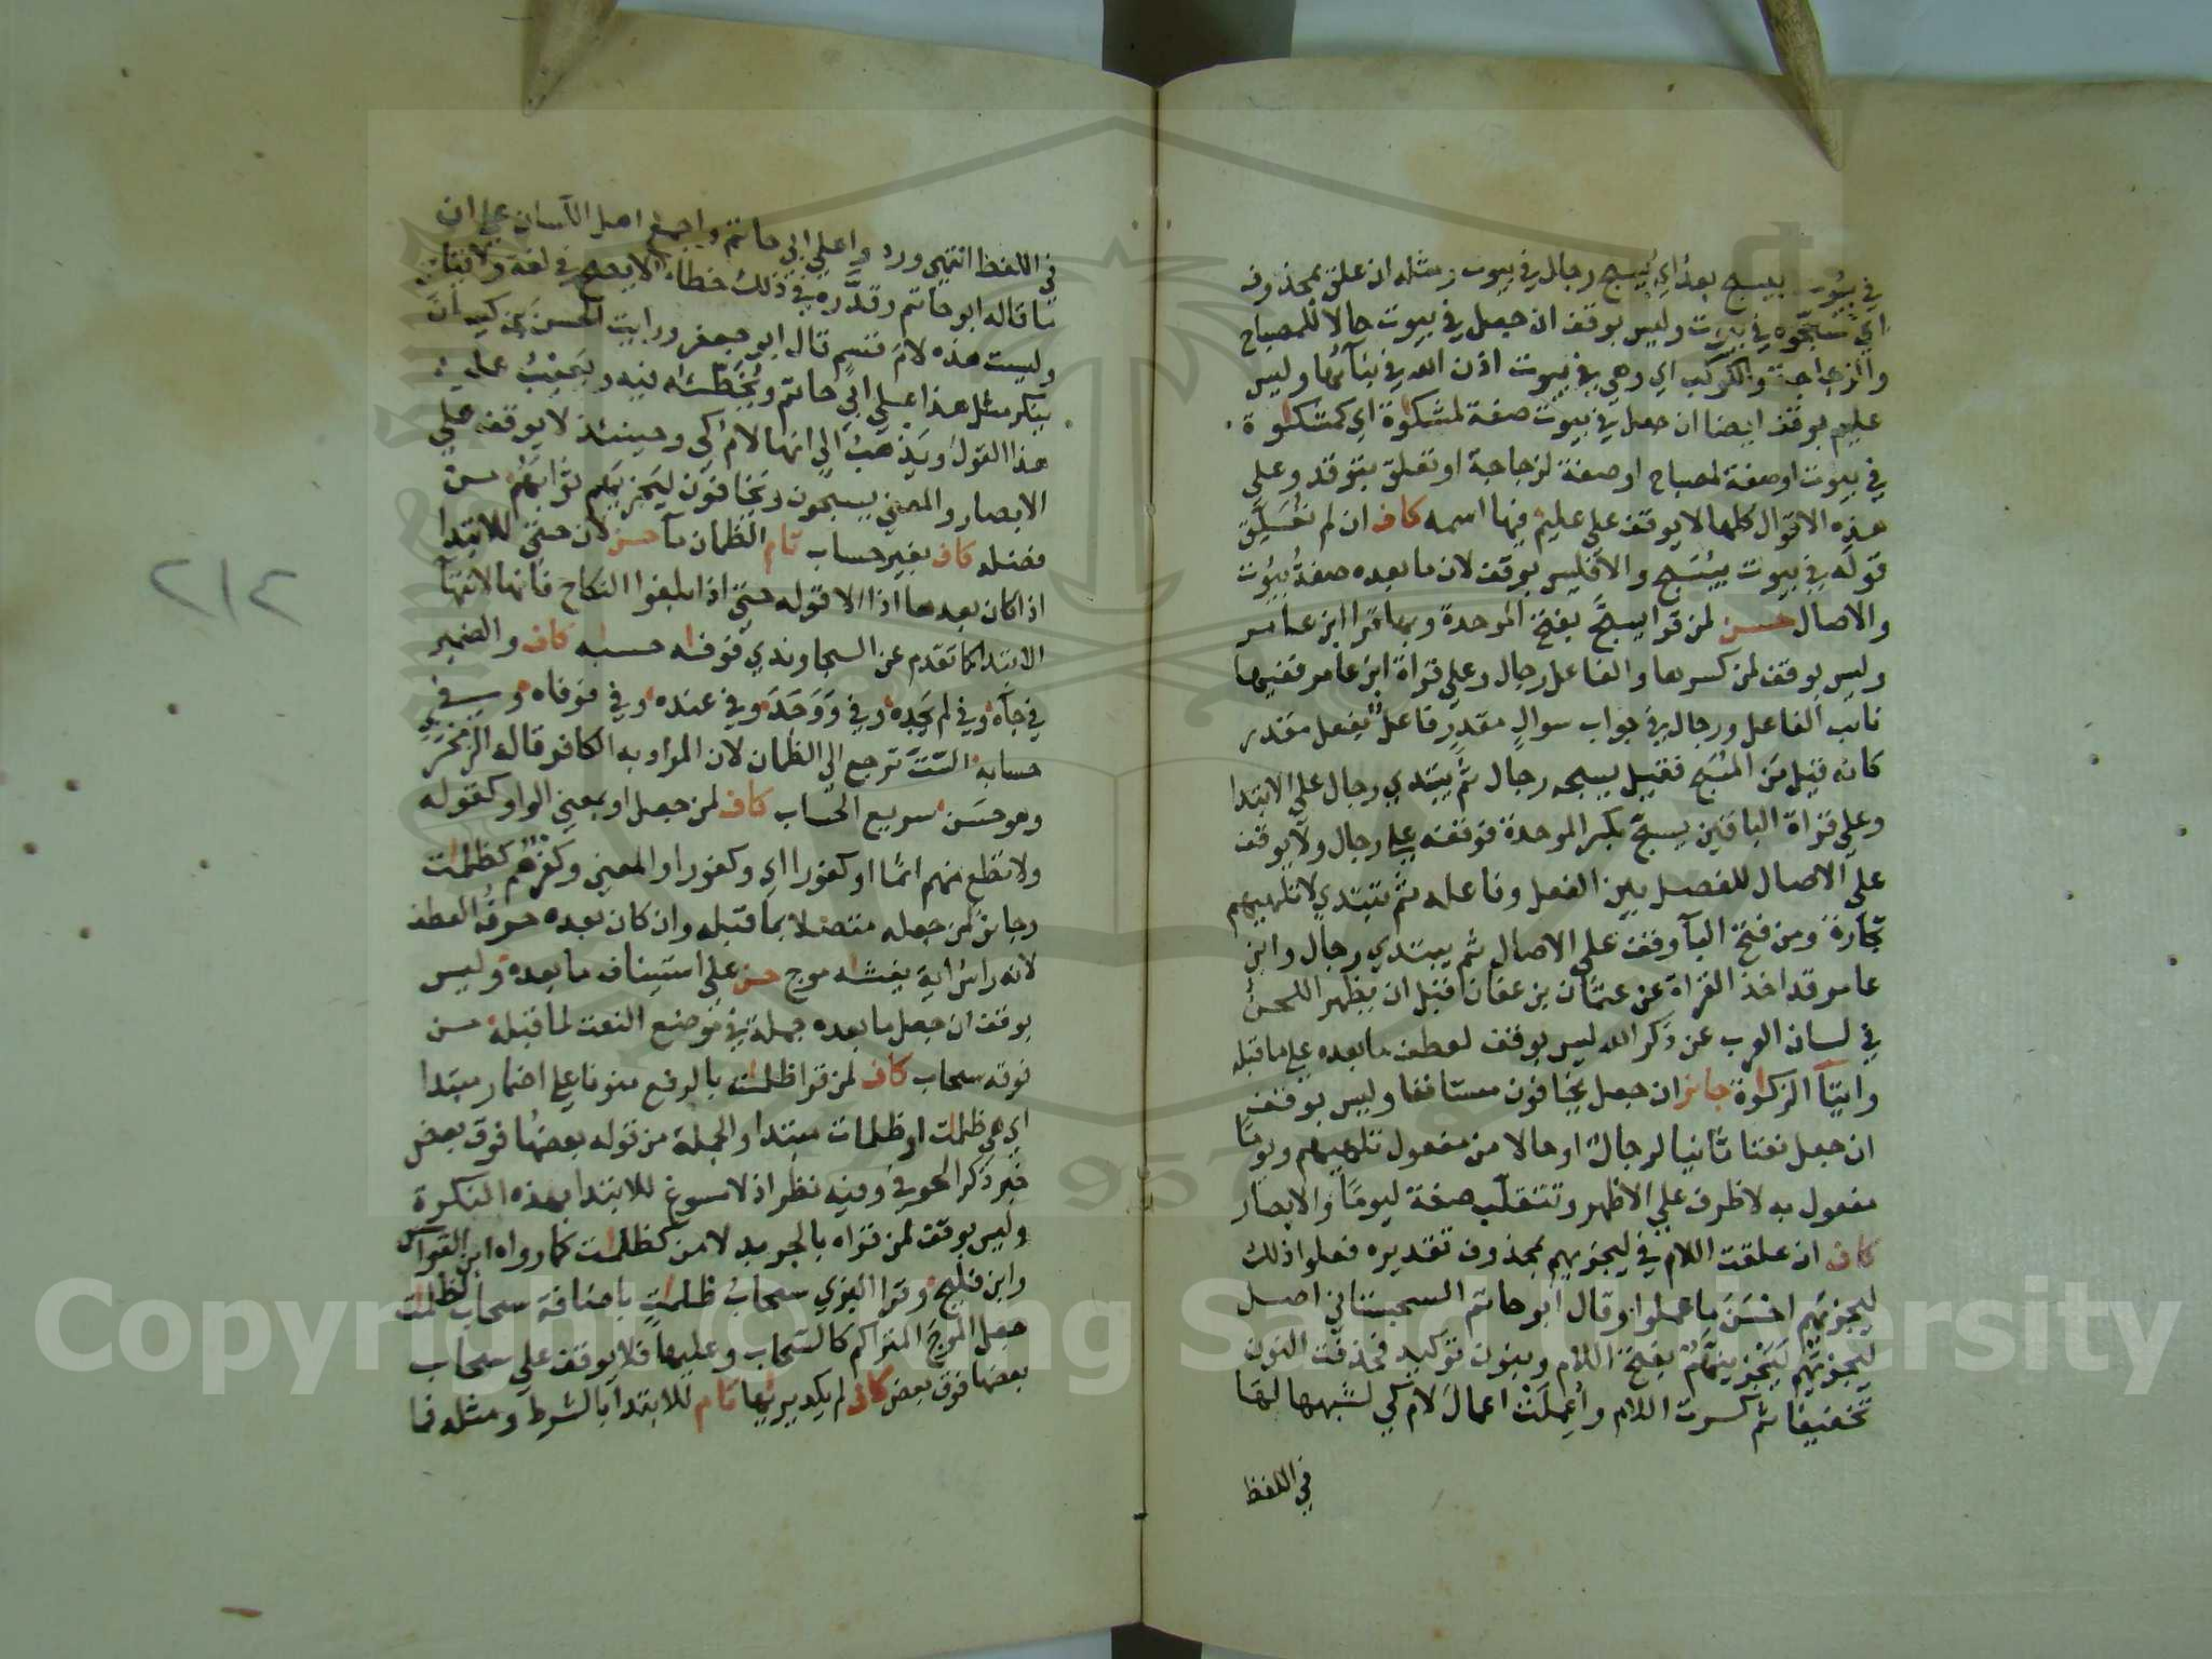 في بيوت بيسبح بعد اي يسبح رجال في بيوت ومثله ان علق بمحذوف
اي سبحوه في بيوت وليس بوقف ان جعل في بيوت حالا للمصباح
والزجاجة والكوكب اي وهي في بيوت اذن الله في بنائها وليس
عليم بوقف ايضا ان جعل في بيوت صفة لمشكوة اي كمشكوة
في بيوت او صفة لمصباح او صفة لزجاجة او تعلق بتوقد وعلي
هذه الاقوال كلها لا يوقف علي عليم فيها اسمه كاف ان لم تعلق
قوله في بيوت بيسبح والا فليس بوقف لان ما بعده صفة بيوت
والاصال حسن لمن قرا يسبح بفتح الموحدة وبها قرا ابن عامر
وليس بوقف لمن كسرها والفاعل رجال وعلي قراة ابن عامر ففيها
نائب الفاعل ورجال في جواب سوال مقدر فاعل بفعل مقدر
كانه قيل من المسبح فقيل يسبحه رجال ثم يبتدي رجال علي الابتدا
وعلي قراة الباقين يسبح بكسر الموحدة فوقفه علي رجال ولا يوقف
علي الاصال للفصل بين الفعل وفاعله ثم تبتدي لا تلهيهم
تجارة ومن فتح البآ وقف علي الاصال ثم يبتدي رجال وابن
عامر قد اخذ القراة عن عثمان بن عفان قبل ان يظهر اللحن
في لسان العرب عن ذكر الله ليس بوقف لعطف ما بعده علي ما قبله
وايتآ الزكوة جائز ان جعل يخافون مستانفا وليس بوقف
ان جعل نعتا ثانيا لرجال او حالا من مفعول تلهيهم ويوما
مفعول به لا ظرف علي الاظهر وتتقلب صفة ليوما والابصار
كاف ان علقت اللام في ليجزيهم بمحذوف تقديره فعلوا ذلك
ليجزيهم احسن ما عملوا وقال ابو حاتم السجستاني اصل
ليجزيهم ليجزينهم بفتح اللام وبنون توكيد فحذفت النون
تخفيفا ثم كسرت اللام واعملت اعمال لام كي لشبهها لها
في اللفظ
في اللفظ انتهي ورد واعلي ابي حاتم واجمع اهل اللسان علي ان
ما قاله ابو حاتم وقدره في ذلك خطا لا يصح في لغة ولا قياس
وليست هذه لام قسم قال ابو جعفر ورايت الحسن بن كيسان
ينكر مثل هذا علي ابي حاتم ويخطئه فيه ويعيب عليه
هذا القول ويذهب الي انها لام كي وحينئذ لا يوقف علي
الابصار والمعني يسبحون ويخافون ليجزيهم ثوابهم من
فضله كاف بغير حساب تام الظمان مآ حسن لان حتي للابتدا
اذا كان بعدها اذا الا قوله حتي اذا بلغوا النكاح فانها لانتهآ
الابتدا كما تقدم عن السجاوندي فوفاه حسابه كاف والضمير
في جآه وفي لم يجده وفي ووجد وفي عنده وفي فوفاه وفي
حسابه الستت ترجع الي الظمان لان المراد به الكافر قاله الزمخشري
وهو حسن سريع الحساب كاف لمن جعل او بمعني الواو كقوله
ولا تطع منهم اثما او كفورا اي وكفورا والمعني وكفرهم كظلمات
وجائز لمن جعله متصلا بما قبله وان كان بعده حرف العطف
لانه راس اية يغشاه موج حسن علي استيناف ما بعده وليس
بوقف ان جعل ما بعده جملة في موضع النعت لما قبله من
فوقه سحاب كاف لمن قرا ظلمات بالرفع منونا علي اضمار مبتدا
اي هي ظلمات او ظلمات مبتدا والجملة من قوله بعضها فوق بعض
خبر ذكر الحوفي وفيه نظر اذ لا مسوغ للابتدا بهذه النكرة
وليس بوقف لمن قراه بالجر بدلا من كظلمات كما رواه ابن القواس
وابن فليح وقرا البزي سحاب ظلمات باضافة سحاب لظلمات
جعل الموج المتراكم كالسحاب وعليها فلا يوقف علي سحاب
بعضها فوق بعض كاف لم يكد يريها تام للابتدا بالشرط ومثله فما
٢١٤
Copyright © King Saud University
1957